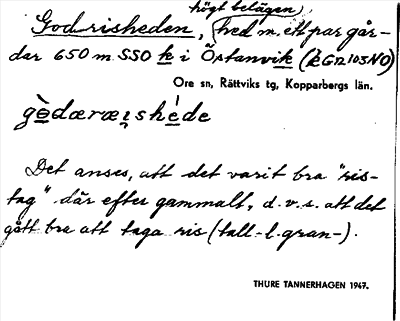 högt belägen
Godrisheden, hed m. ett par går-
dar 650 m SSO k i Östanvik (k GD 103 NO)
Ore sn, Rättviks tg, Kopparbergs län.
gòdæræıshéde
Det anses, att det varit bra "ris-
tag" där efter gammalt, d.v.s. att det
gått bra att taga ris (tall- l. gran-).
THURE TANNERHAGEN 1947.